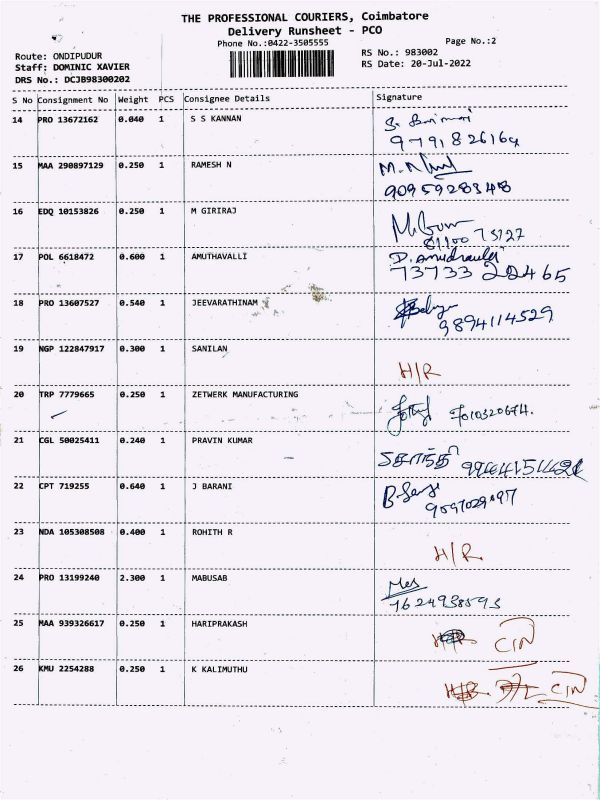 THE PROFESSIONAL COURIERS, Coimbatore
Delivery Runsheet - PCO
Phone No.:0422-3505555
Page No.:2
Route: ONDIPUDUR
RS No.: 983002
Staff: DOMINIC XAVIER
RS Date: 20-Jul-2022
DRS No.: DCJB98300202
S No Consignment No Weight PCS Consignee Details Signature
14 PRO 13672162 0.040 1 S S KANNAN
9791826164
15 MAA 290897129 0.250 1 RAMESH N
9095928348
16 EDQ 10153826 0.250 1 M GIRIRAJ
17 POL 6618472 0.600 1 AMUTHAVALLI
73733 22465
18 PRO 13607527 0.540 1 JEEVARATHINAM
9894114529
19 NGP 122847917 0.300 1 SANILAN
H/R
20 TRP 7779665 0.250 1 ZETWERK MANUFACTURING
21 CGL 50025411 0.240 1 PRAVIN KUMAR
22 CPT 719255 0.640 1 J BARANI
23 NDA 105308508 0.400 1 ROHITH R
H/R
24 PRO 13199240 2.300 1 MABUSAB
7624938593
25 MAA 939326617 0.250 1 HARIPRAKASH
CIN
26 KMU 2254288 0.250 1 K KALIMUTHU
CIN